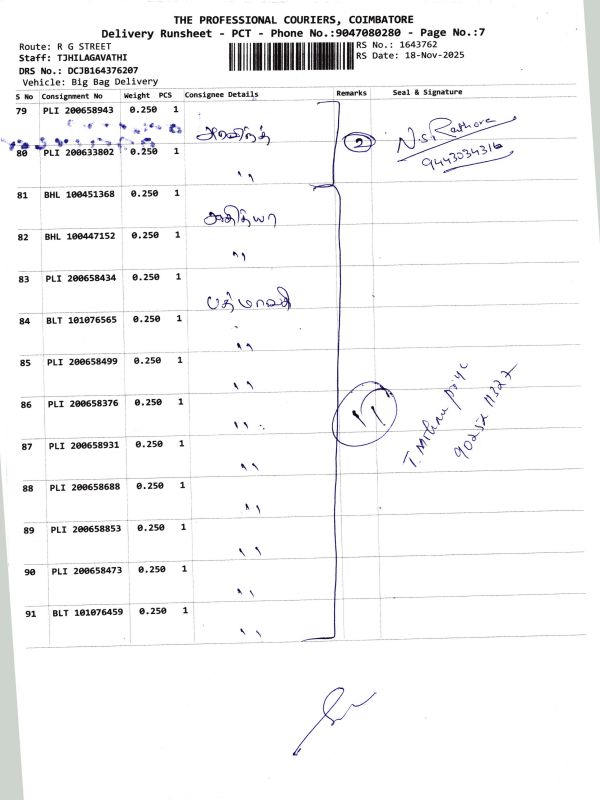 THE PROFESSIONAL COURIERS, COIMBATORE
Delivery Runsheet - PCT - Phone No.:9047080280 - Page No.:7
Route: R G STREET
RS No.: 1643762
Staff: TJHILAGAVATHI
RS Date: 18-Nov-2025
DRS No.: DCJB164376207
Vehicle: Big Bag Delivery
S No Consignment No Weight PCS Consignee Details Remarks Seal & Signature
79 PLI 200658943 0.250 1
அரவிந்த் 2 N.S. Rathore
9443034316
80 PLI 200633802 0.250 1
"
81 BHL 100451368 0.250 1
ஆதித்யா
82 BHL 100447152 0.250 1
"
83 PLI 200658434 0.250 1
பத்மாவதி
84 BLT 101076565 0.250 1
"
85 PLI 200658499 0.250 1
"
86 PLI 200658376 0.250 1
" 11
T. 
90252 11327
87 PLI 200658931 0.250 1
"
88 PLI 200658688 0.250 1
"
89 PLI 200658853 0.250 1
"
90 PLI 200658473 0.250 1
"
91 BLT 101076459 0.250 1
"